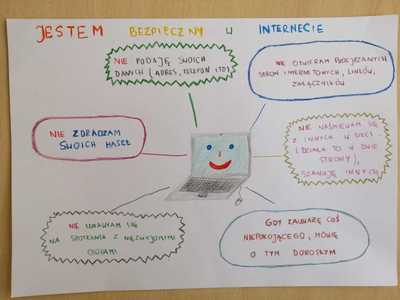 JESTEM BEZPIECZNY W INTERNECIE
NIE PODAJĘ SWOICH
DANYCH (ADRES, TELEFON ITD)
NIE OTWIERAM PODEJRZANYCH
STRON INTERNETOWYCH, LINKÓW,
ZAŁĄCZNIKÓW
NIE ZDRADZAM
SWOICH HASEŁ
NIE NAŚMIEWAM SIĘ
Z INNYCH W SIECI
(DZIAŁA TO W DWIE
STRONY),
SZANUJĘ INNYCH
NIE UMAWIAM SIĘ
NA SPOTKANIA Z NIEZNAJOMYMI
OSOBAMI
GDY ZAUWAŻĘ COŚ
NIEPOKOJĄCEGO, MÓWIĘ
O TYM DOROSŁYM